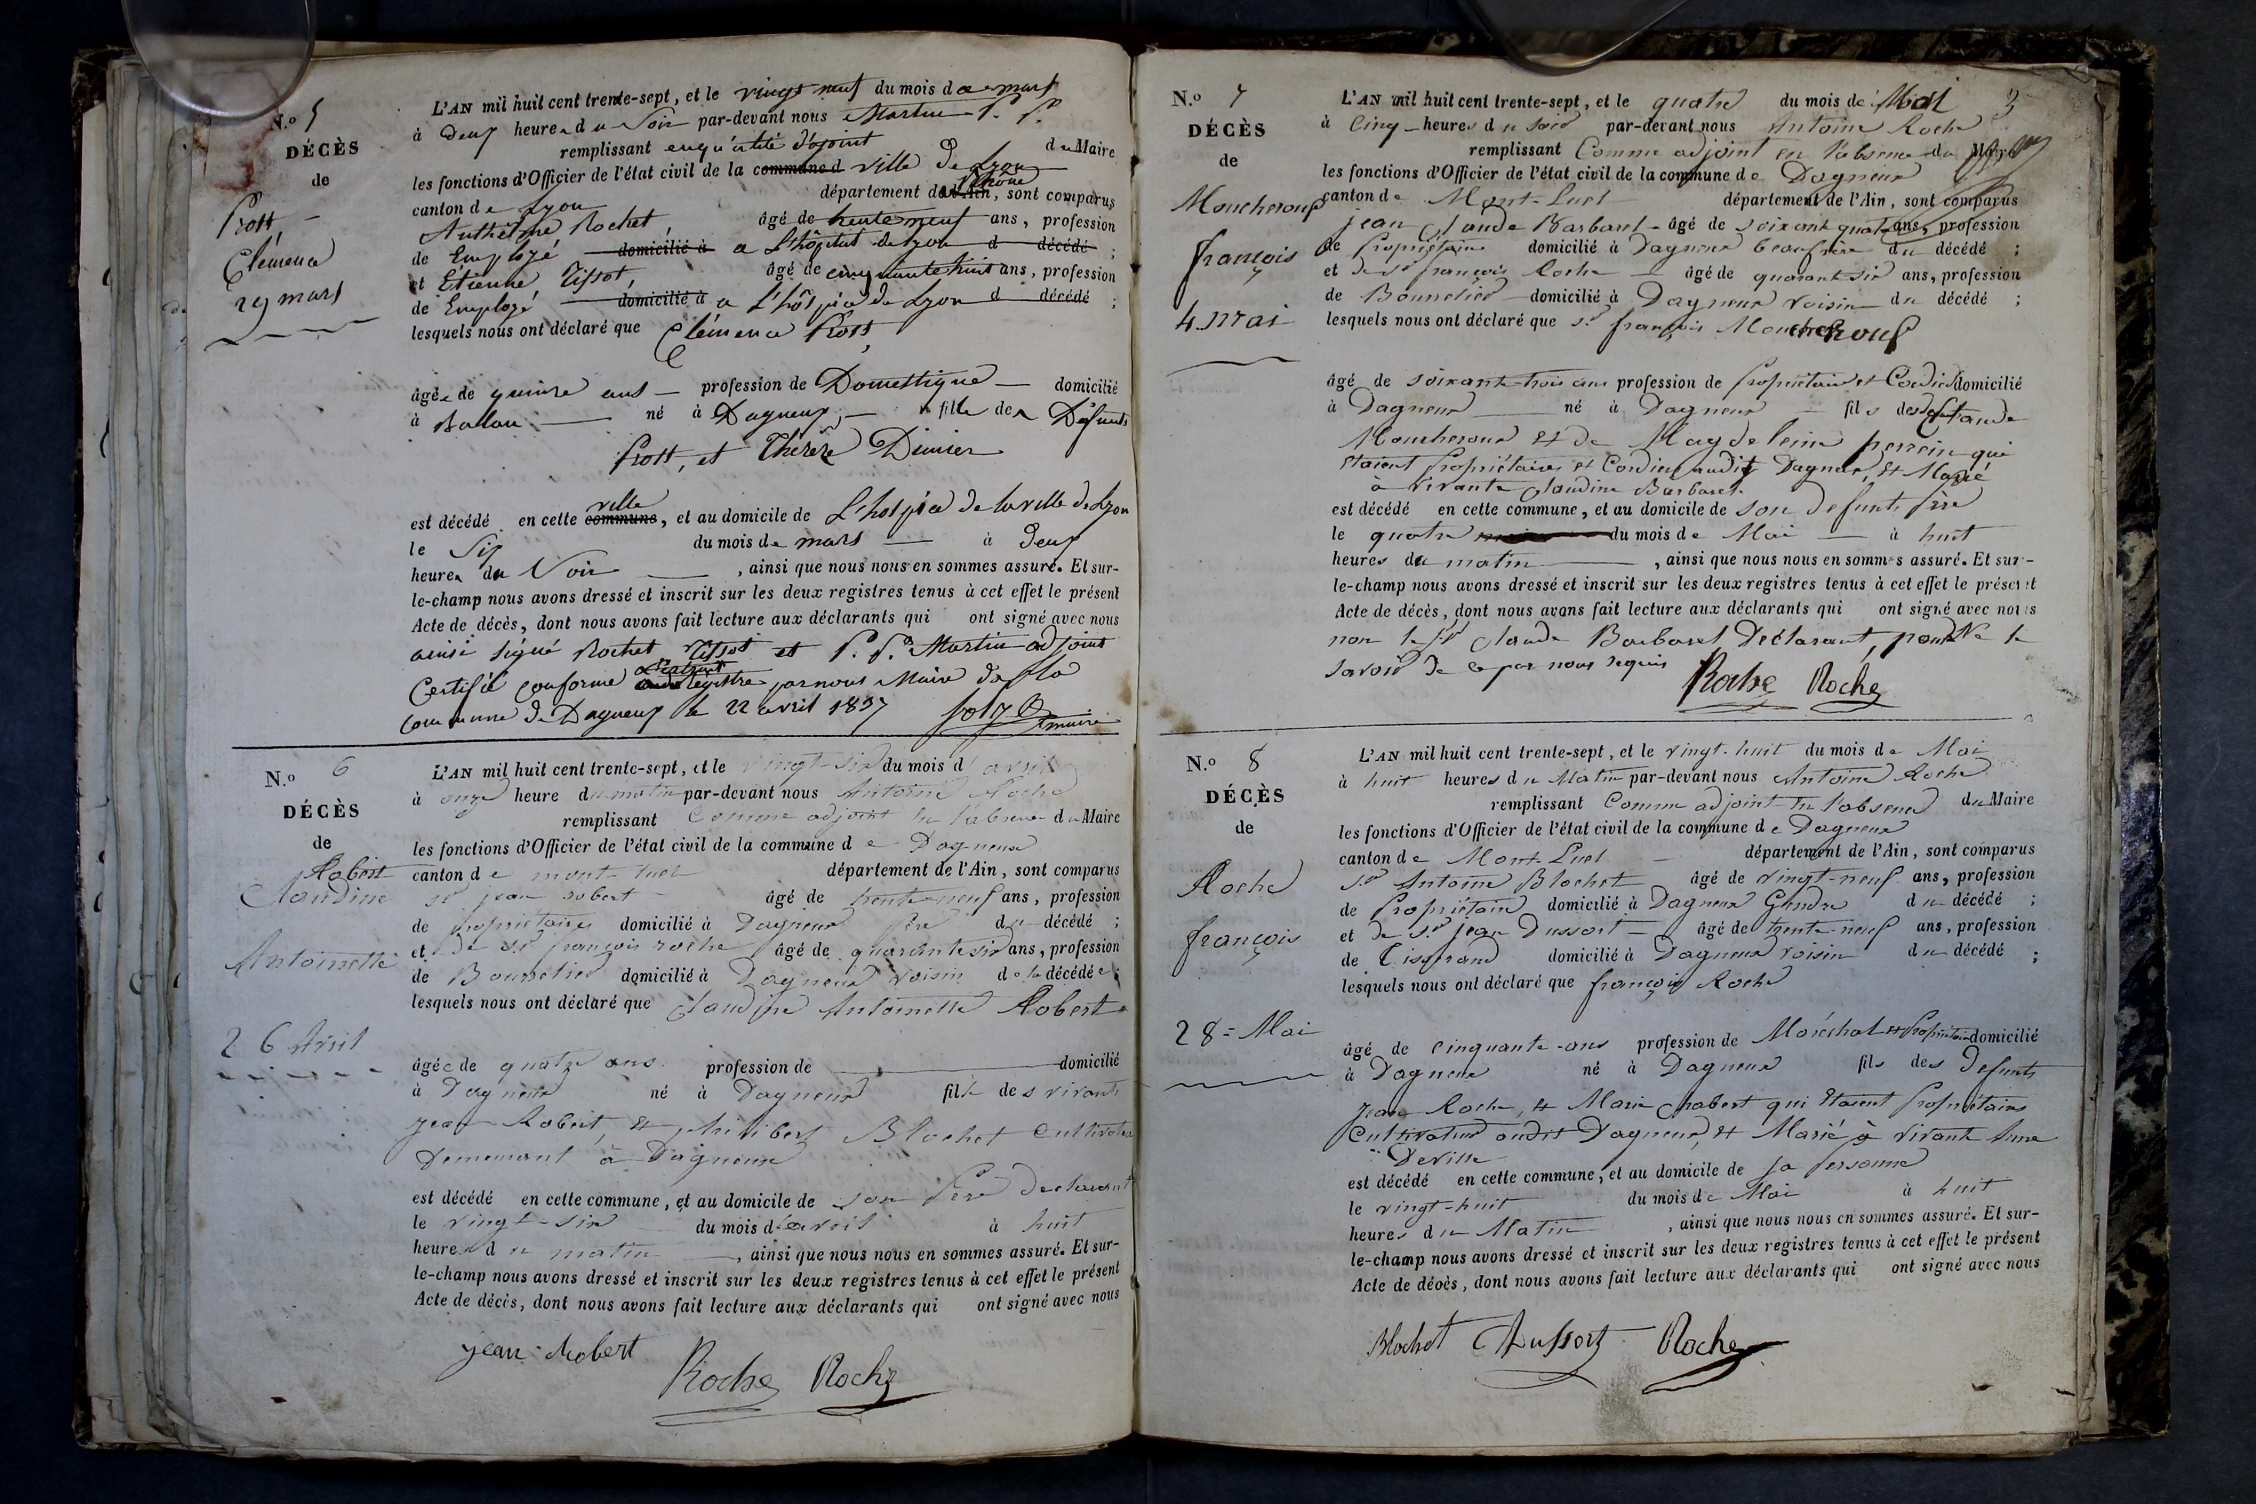 N.o 5
DÉCÈS
de
Prost,
Clémence
29 mars
L'AN mil huit cent trente-sept, et le vingt neuf du mois de mars
à deux heures du Soir par-devant nous Martin P. P.
remplissant en qualité d'ajoint du Maire
les fonctions d'Officier de l'état civil de la commune d ville De Lyon
canton de Lyon département du Rhône de l'Ain, sont comparus
Anthelme Rochet, âgé de trente neuf ans, profession
de Employé domicilié à a L'hôpital de Lyon d décédé ;
et Etienne Tissot, âgé de cinquante huit ans, profession
de Employé domicilié à a L'hôspice de Lyon d décédé ;
lesquels nous ont déclaré que Clémence Prost,
âgée de quinze ans profession de Domestique domicilié
à Balan né à Dagneux, fille des Défunts
Prost, et Thérèse Dimier
est décédé en cette commune ville, et au domicile de L'hospice de la ville de Lyon
le Six du mois de mars à deux
heures du Soir, ainsi que nous nous en sommes assuré. Et sur-
le-champ nous avons dressé et inscrit sur les deux registres tenus à cet effet le présent
Acte de décès, dont nous avons fait lecture aux déclarants qui ont signé avec nous
ainsi signé Rochet Tissot et P. P. Martin adjoint
Certifié conforme à l'extrait registre par nous Maire de la
commune de Dagneux le 22 avril 1837
maire
N.o 6
DÉCÈS
de
Robert
Claudine
Antoinette
26 Avril
L'AN mil huit cent trente-sept, et le vingt-six du mois d'avril
à onze heure du matin par-devant nous Antoine Roche
remplissant Comme adjoint en l'absence du Maire
les fonctions d'Officier de l'état civil de la commune de Dagneux
canton de mont-luel département de l'Ain, sont comparus
sr jean robert âgé de trente-neuf ans, profession
de propriétaire domicilié à Dagneux père du décédé ;
et de sr françois roche âgé de quarante six ans, profession
de Bourrelier domicilié à Dagneux voisin de la décédée ;
lesquels nous ont déclaré que Claudine Antoinette Robert
âgée de quatre ans profession de domicilié
à Dagneux né à Dagneux fille des vivants
jean Robert, et philibert Blachet Cultivateur
Demeurant à Dagneux
est décédé en cette commune, et au domicile de son Père declarant
le vingt-six du mois d'avril à huit
heures du matin, ainsi que nous nous en sommes assuré. Et sur-
le-champ nous avons dressé et inscrit sur les deux registres tenus à cet effet le présent
Acte de décès, dont nous avons fait lecture aux déclarants qui ont signé avec nous
jean Robert Roche Roche
N.o 7
DÉCÈS
de
Moucheroux
françois
4 mai
3
L'AN mil huit cent trente-sept, et le quatre du mois de Mai
à Cinq heures du soir par-devant nous Antoine Roche
remplissant Comme adjoint en l'absence du Maire
les fonctions d'Officier de l'état civil de la commune de Dagneux
canton de Mont-Luel département de l'Ain, sont comparus
jean Claude Barbaret âgé de soixante quatre ans, profession
de Propriétaire domicilié à Dagneux beaufrère du décédé ;
et de sr françois Roche âgé de quarante six ans, profession
de Bourrelier domicilié à Dagneux voisin du décédé ;
lesquels nous ont déclaré que sr françois Moucheroux
âgé de soixante-trois ans profession de Propriétaire et Cordier domicilié
à Dagneux né à Dagneux fils des defts Claude
Moucheroux et de Magdeleine perrein qui
Etaient Propriétaires et Cordiers audit Dagneux, et Marié
à vivante Claudine Barbaret.
est décédé en cette commune, et au domicile de son defunt Père
le quatre du mois de Mai à huit
heures du matin, ainsi que nous nous en sommes assuré. Et sur-
le-champ nous avons dressé et inscrit sur les deux registres tenus à cet effet le présent
Acte de décès, dont nous avons fait lecture aux déclarants qui ont signé avec nous
non le sr Claude Barbaret Déclarant, pour Ne le
savoir de ce par nous requis
Roche Roche
N.o 8
DÉCÈS
de
Roche
françois
28 = Mai
L'AN mil huit cent trente-sept, et le vingt-huit du mois de Mai
à huit heures du Matin par-devant nous Antoine Roche
remplissant Comme adjoint en l'absence du Maire
les fonctions d'Officier de l'état civil de la commune de Dagneux
canton de Mont-Luel département de l'Ain, sont comparus
sr Antoine Blachet âgé de vingt-neuf ans, profession
de Propriétaire domicilié à Dagneux Gendre du décédé ;
et de sr jean Dussort âgé de trente-neuf ans, profession
de Tisserand domicilié à Dagneux voisin du décédé ;
lesquels nous ont déclaré que françois Roche
âgé de cinquante-ans profession de Maréchal et Propriétaire domicilié
à Dagneux né à Dagneux fils des Defunts
jean Roche, et Marie Chabert qui Etaient Propriétaires
Cultivateurs audit Dagneux, et Marié à vivante Anne
Deville
est décédé en cette commune, et au domicile de sa Personne
le vingt-huit du mois de Mai à huit
heures du Matin, ainsi que nous nous en sommes assuré. Et sur-
le-champ nous avons dressé et inscrit sur les deux registres tenus à cet effet le présent
Acte de décès, dont nous avons fait lecture aux déclarants qui ont signé avec nous
Blachet Dussort Roche